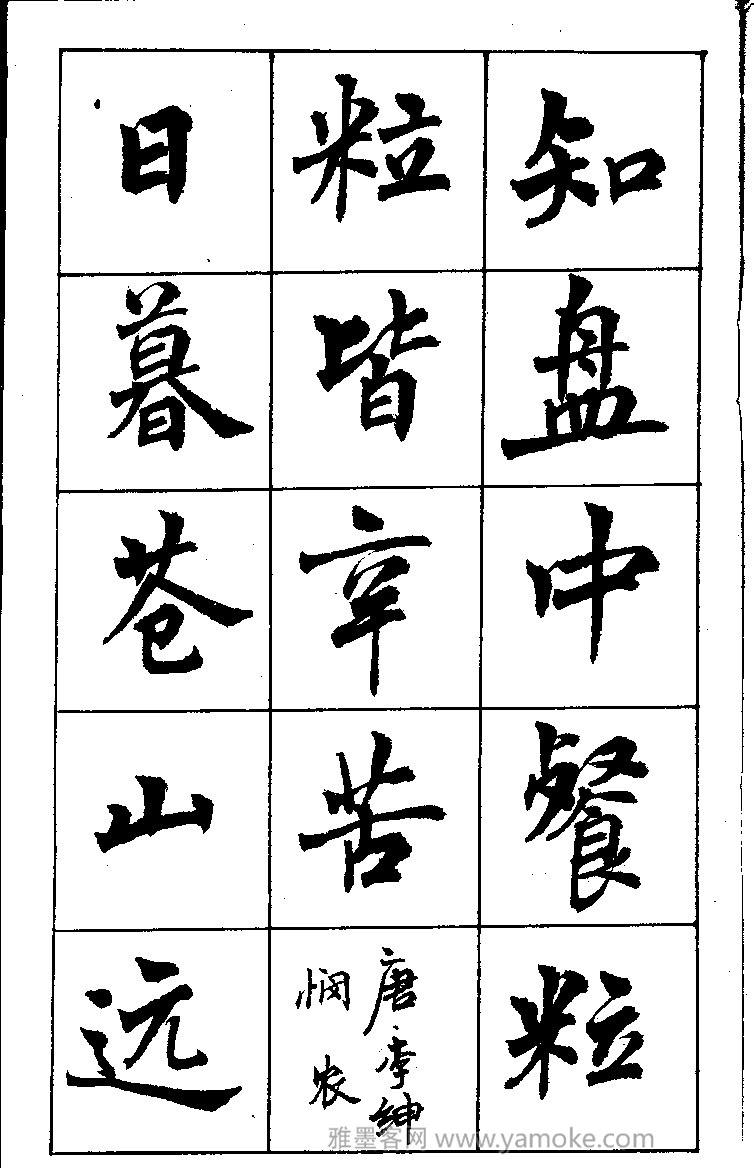 知盘中餐粒
粒皆辛苦
唐李绅
悯农
日暮苍山远
雅墨客网 www.yamoke.com